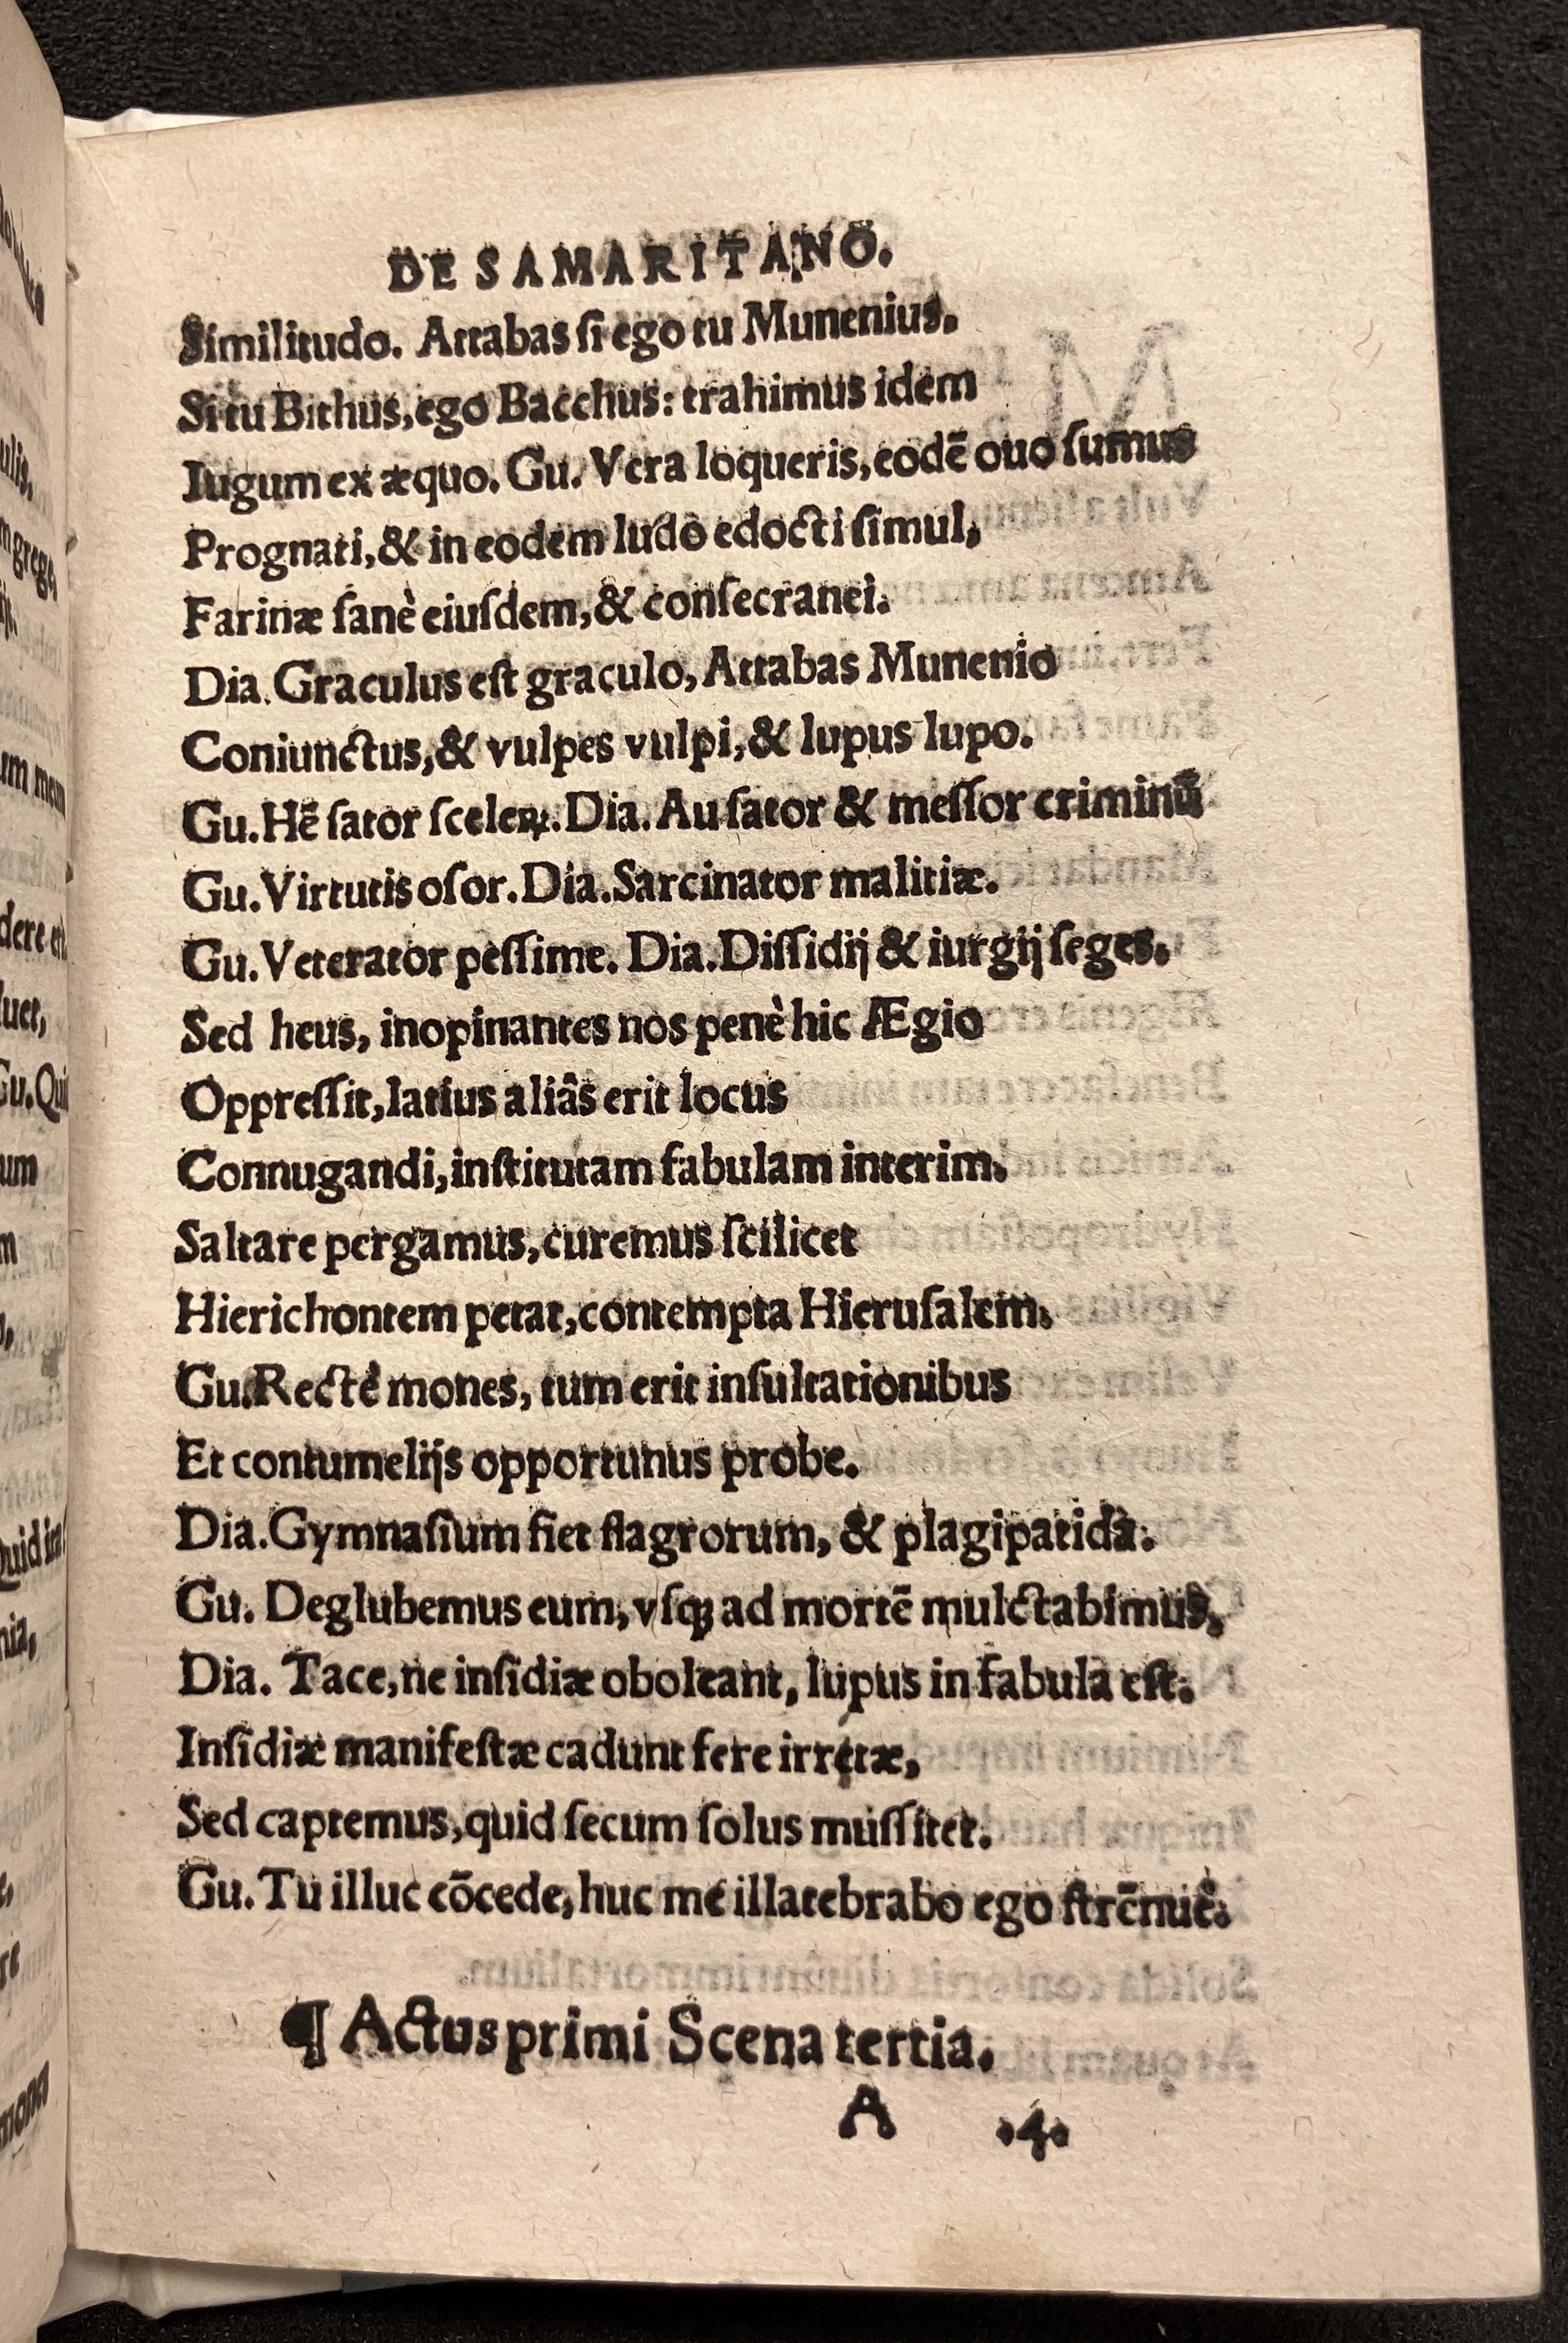 DE SAMARITANO.
Similitudo. Attabas si ego tu Munenius.
Si tu Bithus, ego Bacchus: trahimus idem
Iugum ex æquo. Gu. Vera loqueris, eodē ouo ſumus
Prognati, & in eodem ludo edocti ſimul,
Farinæ ſanè eiuſdem, & conſecranei.
Dia. Graculus eſt graculo, Attabas Munenio
Coniunctus, & vulpes vulpi, & lupus lupo.
Gu. Hē ſator ſceleꝝ. Dia. Au ſator & meſſor criminū
Gu. Virtutis oſor. Dia. Sarcinator malitiæ.
Gu. Veterator peſſime. Dia. Diſſidij & iurgij ſeges.
Sed heus, inopinantes nos penè hic Ægio
Oppreſſit, latius aliâs erit locus
Connugandi, inſtitutam fabulam interim.
Saltare pergamus, curemus ſcilicet
Hierichontem petat, contempta Hieruſalem.
Gu. Rectè mones, tum erit inſultationibus
Et contumelijs opportunus probe.
Dia. Gymnaſium fiet flagrorum, & plagipatida.
Gu. Deglubemus eum, vſqꝫ ad mortē mulctabimus.
Dia. Tace, ne inſidiæ oboleant, lupus in fabula eſt.
Inſidiæ manifeſtæ cadunt fere irretæ,
Sed captemus, quid ſecum ſolus muſſitet.
Gu. Tu illuc cōcede, huc me illatebrabo ego ſtrēnuè.
¶ Actus primi Scena tertia.
A .4.